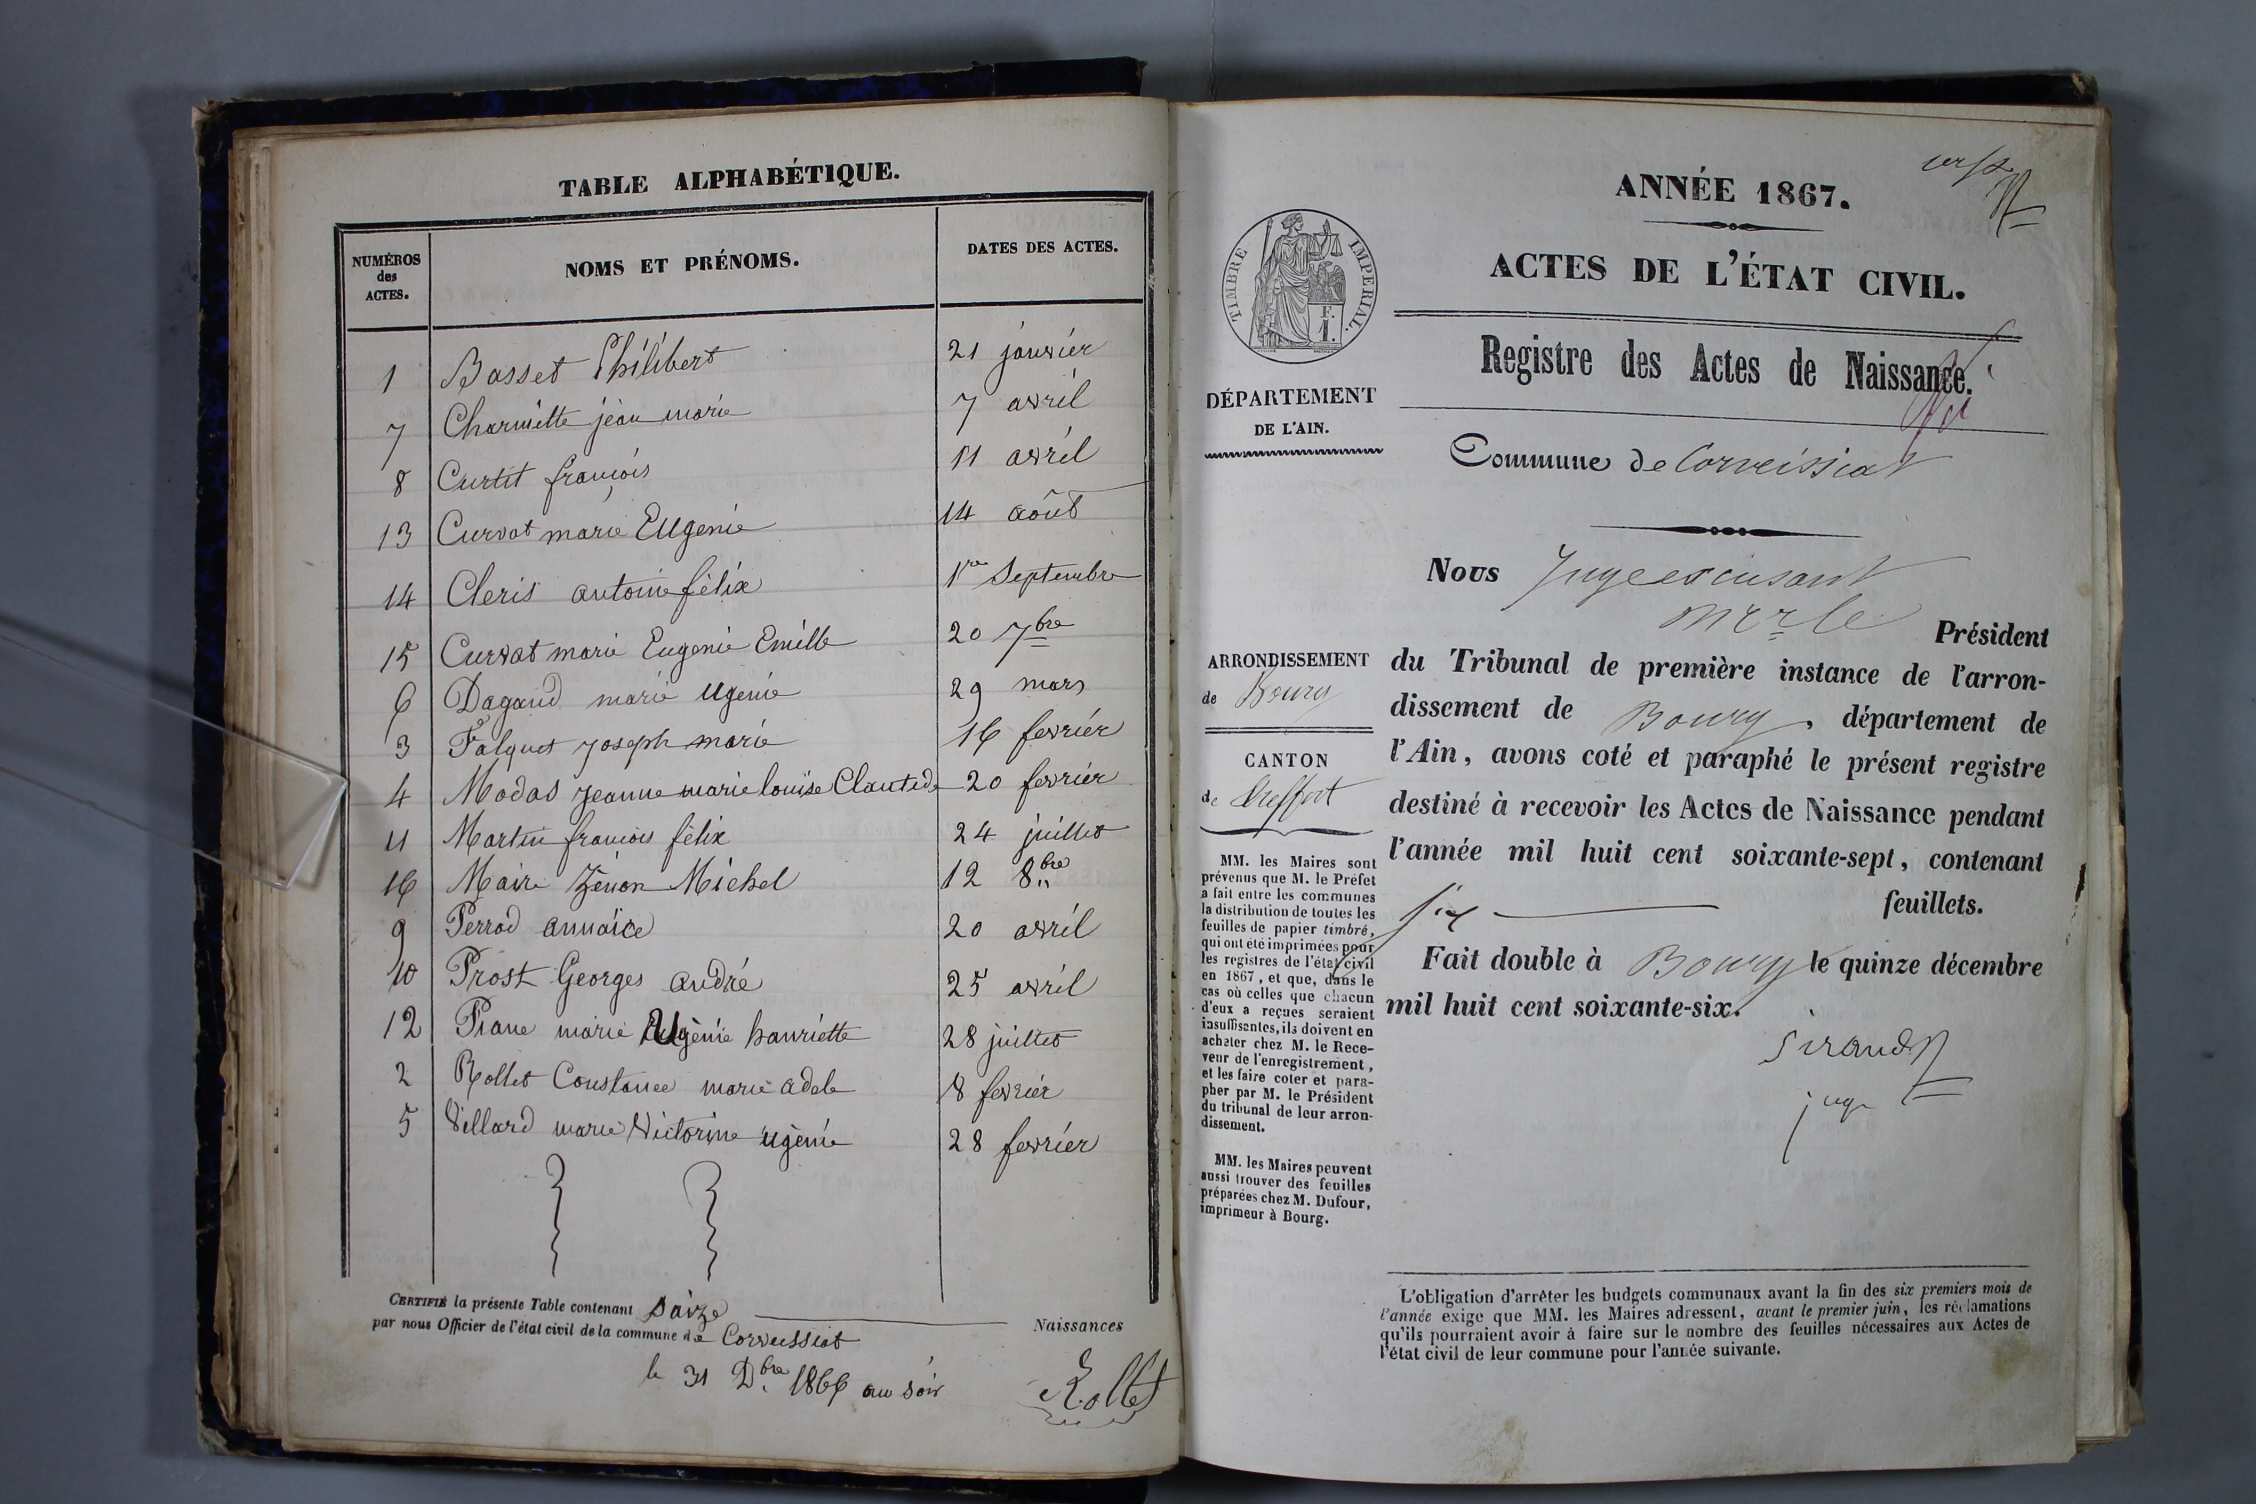 TABLE ALPHABÉTIQUE.
NUMÉROS des ACTES.
NOMS ET PRÉNOMS.
DATES DES ACTES.
1 Basset Philibert 21 janvier
7 Charmette jean marie 7 avril
8 Curtit françois 11 avril
13 Curvat marie Eugenie 14 août
14 Cleris antoine félix 1re Septembre
15 Curvat marie Eugenie Emille 20 7bre
6 Dagaud marie Ugenie 29 mars
3 Falquet joseph marie 16 fevrier
4 Modas Jeanne marie louise 20 fevrier
11 Martin francois félix 24 juillet
16 Maire Zénon Michel 12 8bre
9 Perrod annaïce 20 avril
10 Prost Georges andré 25 avril
12 Piane marie Ugènie hanriette 28 juillet
2 Rollet Constance marie adele 8 fevrier
5 Villard marie Victorine ugènie 28 fevrier
CERTIFIÉ la présente Table contenant Saize Naissances
par nous Officier de l'état civil de la commune de Corveissiat
le 31 Dbre 1866 au soir
Rollet
ANNÉE 1867.
ACTES DE L'ÉTAT CIVIL.
TIMBRE IMPÉRIAL.
F. 1.
Registre des Actes de Naissance.
DÉPARTEMENT
DE L'AIN.
Commune de Corveissiat
Nous Juge
Merle Président
du Tribunal de première instance de l'arron-
dissement de Bourg, département de
l'Ain, avons coté et paraphé le présent registre
destiné à recevoir les Actes de Naissance pendant
l'année mil huit cent soixante-sept, contenant
six feuillets.
Fait double à Bourg le quinze décembre
mil huit cent soixante-six.
Sirand
juge
ARRONDISSEMENT
de Bourg
CANTON
de Treffort
MM. les Maires sont
prévenus que M. le Préfet
a fait entre les communes
la distribution de toutes les
feuilles de papier timbré,
qui ont été imprimées pour
les registres de l'état civil
en 1867, et que, dans le
cas où celles que chacun
d'eux a reçues seraient
insuffisantes, ils doivent en
acheter chez M. le Rece-
veur de l'enregistrement,
et les faire coter et para-
pher par M. le Président
du tribunal de leur arron-
dissement.
MM. les Maires peuvent
aussi trouver des feuilles
préparées chez M. Dufour,
imprimeur à Bourg.
L'obligation d'arrêter les budgets communaux avant la fin des six premiers mois de
l'année exige que MM. les Maires adressent, avant le premier juin, les réclamations
qu'ils pourraient avoir à faire sur le nombre des feuilles nécessaires aux Actes de
l'état civil de leur commune pour l'année suivante.